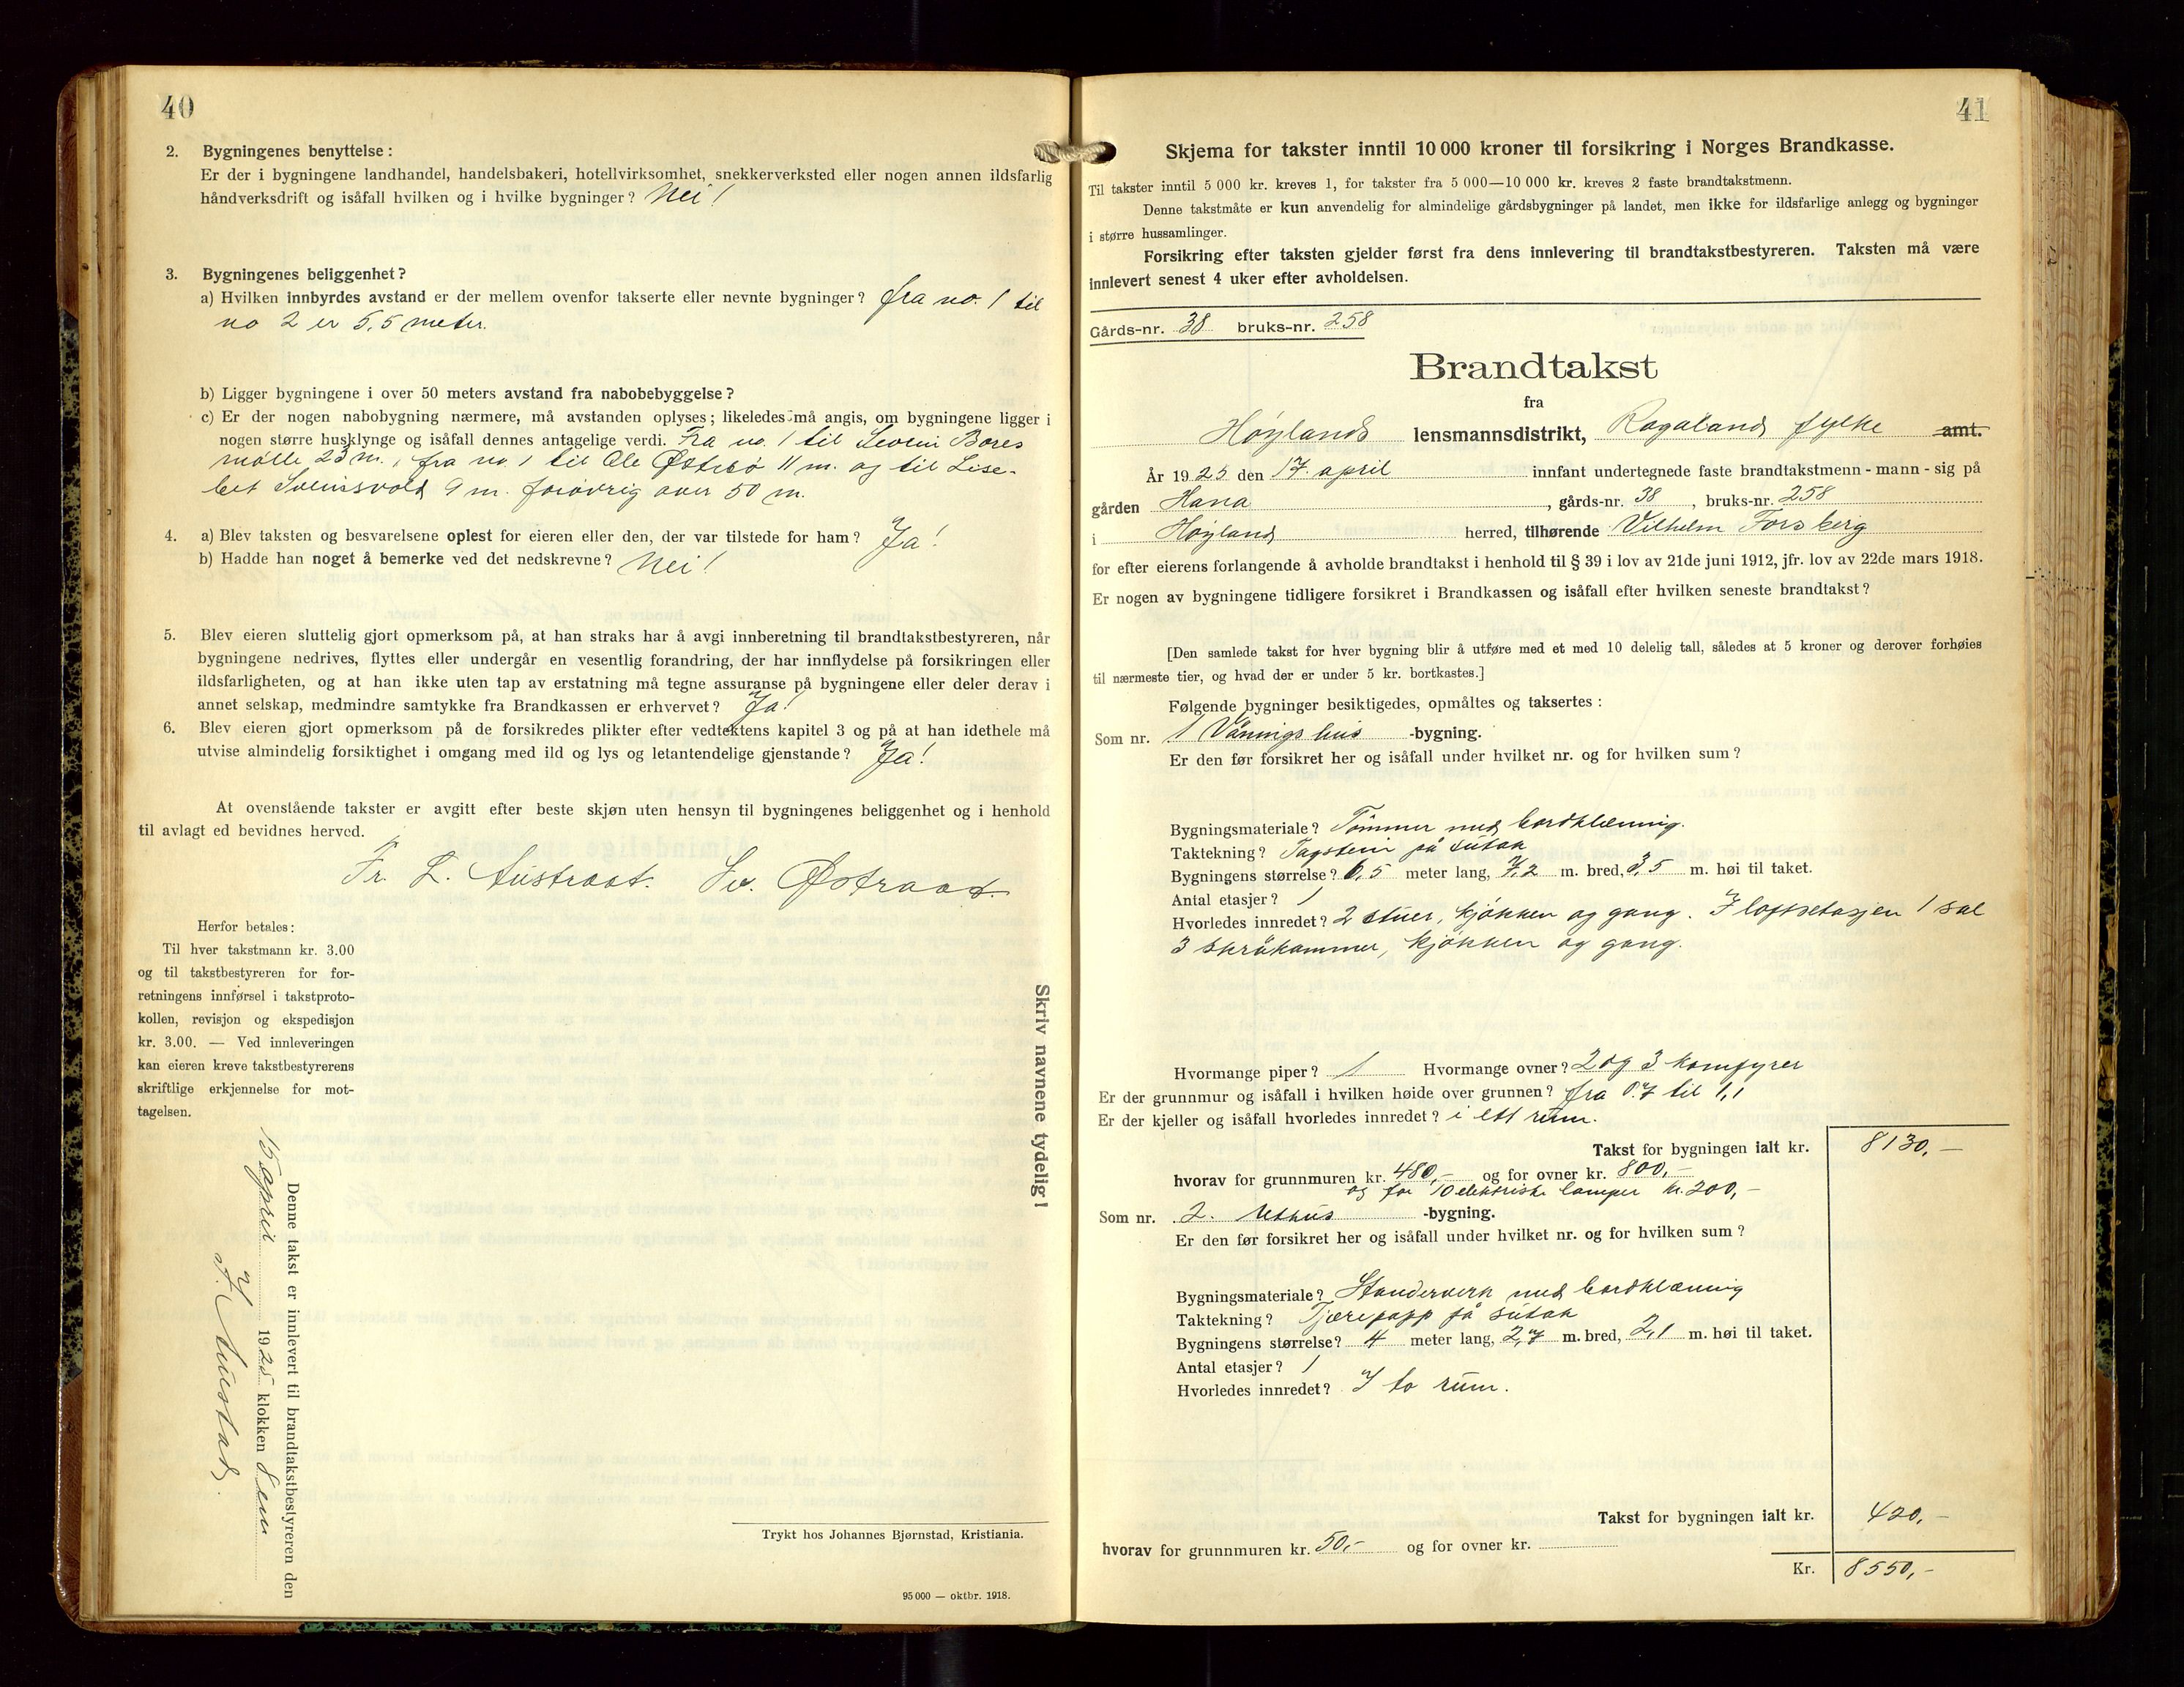 40
2. Bygningenes benyttelse:
Er der i bygningene landhandel, handelsbakeri, hotellvirksomhet, snekkerverksted eller nogen annen ildsfarlig
håndverksdrift og isåfall hvilken og i hvilke bygninger? Nei!
3. Bygningenes beliggenhet?
a) Hvilken innbyrdes avstand er der mellem ovenfor takserte eller nevnte bygninger? fra no. 1 til
no 2 er 5,5 meter.
b) Ligger bygningene i over 50 meters avstand fra nabobebyggelse?
c) Er der nogen nabobygning nærmere, må avstanden oplyses; likeledes må angis, om bygningene ligger i
nogen større husklynge og isåfall dennes antagelige verdi. Fra no. 1 til Bores
mølle 23 m., fra no. 1 til Ole Østebø 11 m. og til Lise-
bet 9 m. forøvrig over 50 m.
4. a) Blev taksten og besvarelsene oplest for eieren eller den, der var tilstede for ham? Ja!
b) Hadde han noget å bemerke ved det nedskrevne? Nei!
5. Blev eieren sluttelig gjort opmerksom på, at han straks har å avgi innberetning til brandtakstbestyreren, når
bygningene nedrives, flyttes eller undergår en vesentlig forandring, der har innflydelse på forsikringen eller
ildsfarligheten, og at han ikke uten tap av erstatning må tegne assuranse på bygningene eller deler derav i
annet selskap, medmindre samtykke fra Brandkassen er erhvervet? Ja!
6. Blev eieren gjort opmerksom på de forsikredes plikter efter vedtektens kapitel 3 og på at han idethele må
utvise almindelig forsiktighet i omgang med ild og lys og letantendelige gjenstande? Ja!
At ovenstående takster er avgitt efter beste skjøn uten hensyn til bygningenes beliggenhet og i henhold
til avlagt ed bevidnes herved.
Fr. L. Austraat. Sv. Østraat.
Herfor betales:
Til hver takstmann kr. 3.00
og til takstbestyreren for for-
retningens innførsel i takstproto-
kollen, revisjon og ekspedisjon
kr. 3.00. — Ved innleveringen
kan eieren kreve takstbestyrerens
skriftlige erkjennelse for mot-
tagelsen.
Skriv navnene tydelig!
Denne takst er innlevert til brandtakstbestyreren den
15 april 1925 klokken 8 em
Trykt hos Johannes Bjørnstad, Kristiania.
95 000 — oktbr. 1918.
41
Skjema for takster inntil 10 000 kroner til forsikring i Norges Brandkasse.
Til takster inntil 5 000 kr. kreves 1, for takster fra 5 000—10 000 kr. kreves 2 faste brandtakstmenn.
Denne takstmåte er kun anvendelig for almindelige gårdsbygninger på landet, men ikke for ildsfarlige anlegg og bygninger
i større hussamlinger.
Forsikring efter taksten gjelder først fra dens innlevering til brandtakstbestyreren. Taksten må være
innlevert senest 4 uker efter avholdelsen.
Gårds-nr. 38 bruks-nr. 258
Brandtakst
fra
Høylands lensmannsdistrikt, Rogaland fylke amt.
År 1925 den 17. april innfant undertegnede faste brandtakstmenn - mann - sig på
gården Hana, gårds-nr. 38, bruks-nr. 258
i Høyland herred, tilhørende Vilhelm Forsberg
for efter eierens forlangende å avholde brandtakst i henhold til § 39 i lov av 21de juni 1912, jfr. lov av 22de mars 1918.
Er nogen av bygningene tidligere forsikret i Brandkassen og isåfall efter hvilken seneste brandtakst?
[Den samlede takst for hver bygning blir å utføre med et med 10 delelig tall, således at 5 kroner og derover forhøies
til nærmeste tier, og hvad der er under 5 kr. bortkastes.]
Følgende bygninger besiktigedes, opmåltes og taksertes:
Som nr. 1 Våningshus -bygning.
Er den før forsikret her og isåfall under hvilket nr. og for hvilken sum?
Bygningsmateriale? Tømmer med bordklæning.
Taktekning? Tagstein på sutak
Bygningens størrelse? 6,5 meter lang, 7,2 m. bred, 3,5 m. høi til taket.
Antal etasjer? 1
Hvorledes innredet? 2 stuer, kjøkken og gang. I loftsetasjen 1 sal
3 skråkammer, kjøkken og gang.
Hvormange piper? 1 Hvormange ovner? 2 og 3 komfyrer
Er der grunnmur og isåfall i hvilken høide over grunnen? fra 0.7 til 1,1
Er der kjeller og isåfall hvorledes innredet? i ett rum.
Takst for bygningen ialt kr. 8130,—
hvorav for grunnmuren kr. 480,— og for ovner kr. 800,—
og for 10 elektriske lamper kr. 200,—
Som nr. 2. Uthus -bygning.
Er den før forsikret her og isåfall under hvilket nr. og for hvilken sum?
Bygningsmateriale? Standerverk med bordklæning
Taktekning? Tjærepapp på sutak
Bygningens størrelse? 4 meter lang, 2,7 m. bred, 2,1 m. høi til taket.
Antal etasjer? 1
Hvorledes innredet? I to rum.
Takst for bygningen ialt kr. 420,—
hvorav for grunnmuren kr. 50,— og for ovner kr.
Kr. 8550,—